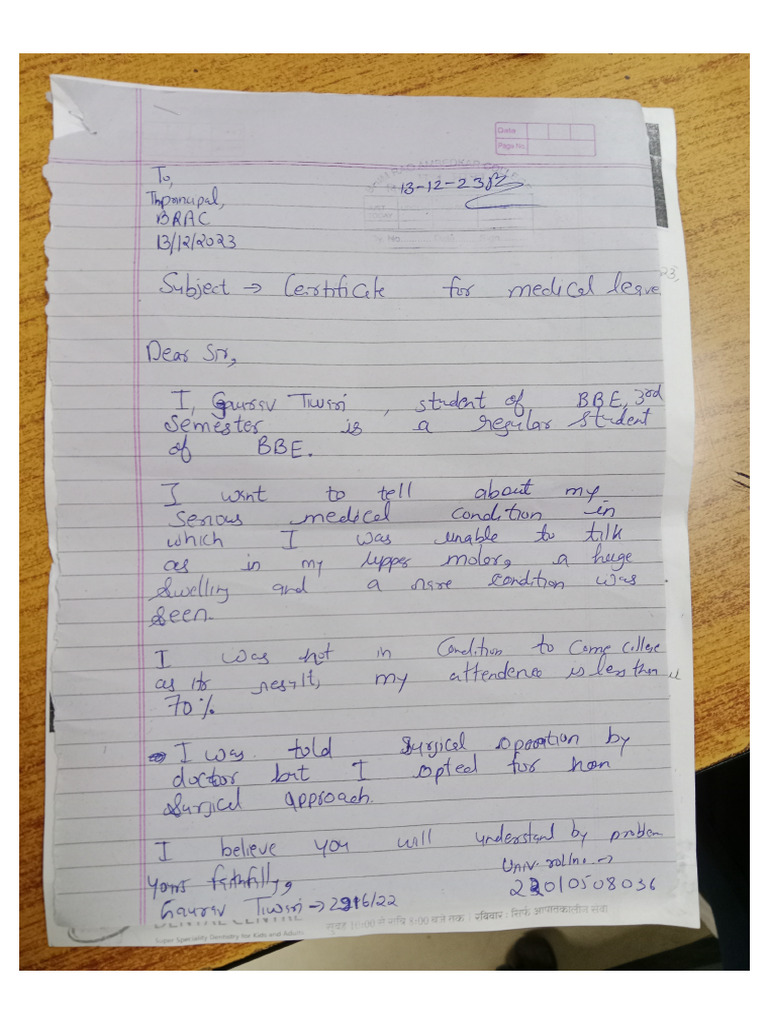 Date
Page No.
BHIM RAO AMBEDKAR COLLEGE
13-12-23
To,
The principal,
BRAC
13/12/2023
Subject → Certificate for medical leave
23,
Dear Sir,
I, Gaurav Tiwari, student of BBE, 3rd
Semester is a regular student
of BBE.
I want to tell about my
serious medical condition in
which I was unable to talk
as in my upper molor, a huge
swelling and a rare condition was
seen.
I was not in condition to come college
as its result, my attendence is less than
70%
I was told surgical operation by
doctor but I opted for non
surgical approach.
I believe you will understand by problem
Yours faithfully,
Univ. rollno. →
22010508036
Gaurav Tiwari → 2916/22
DENTAL CENTRE
Super Speciality Dentistry for Kids and Adults
सुबह 10:00 से रात्रि 8:00 बजे तक । रविवार: सिर्फ आपातकालीन सेवा